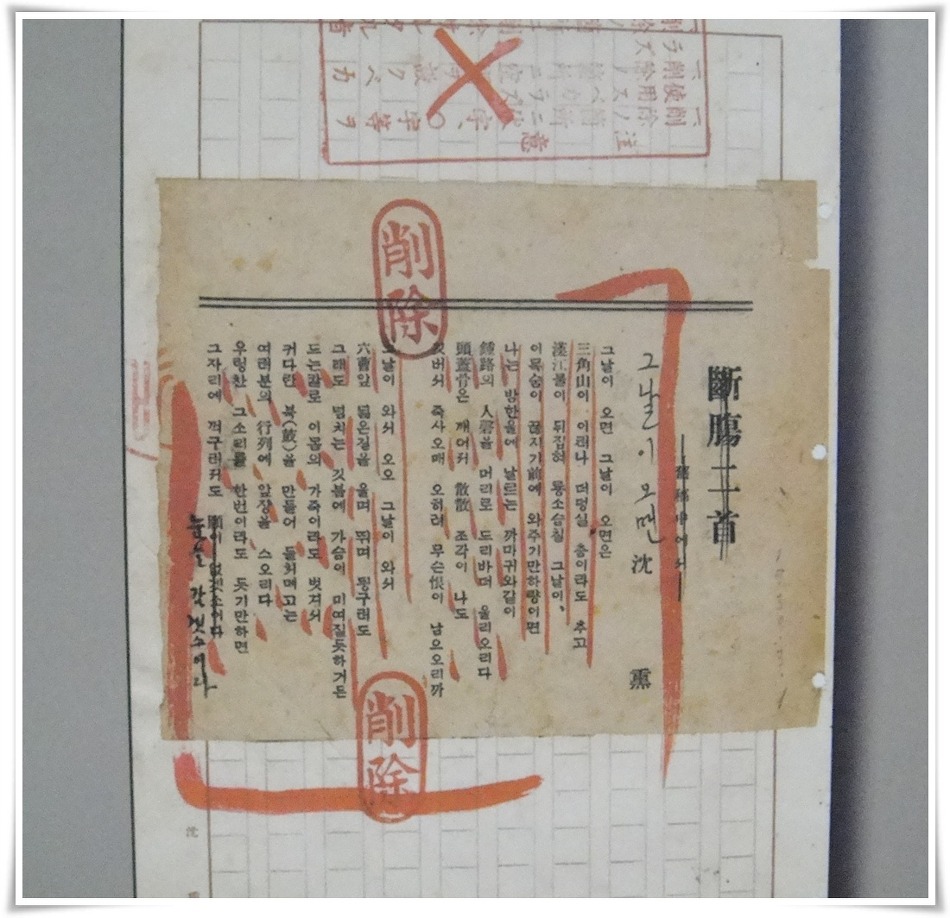 斷膓二首
舊稿中에서
그날이 오면
沈 熏
그날이 오면 그날이 오면은
三角山이 이러나 더덩실 춤이라도 추고
漢江물이 뒤집혀 룡소슴칠 그날이,
이목숨이 끊지기前에 와주기만하량이면
나는 밤한울에 날르는 까마귀와같이
鍾路의 人磬을 머리로 드리바더 울리오리다
頭蓋骨은 깨어저 散散 조각이 나도
깃버서 죽사오매 오히려 무슨恨이 남으오리까
그날이 와서 오오 그날이 와서
六曹앞 넓은길을 울며 뛰며 딍구러도
그래도 넘치는 깃븜에 가슴이 미여질듯하거든
드는칼로 이몸의 가죽이라도 벗겨서
커다란 북(鼓)을 만들어 들처메고는
여러분의 行列에 앞장을 스오리다
우렁찬 그소리를 한번이라도 듯기만하면
그자리에 꺽구러저도 願이 없겟소이다
눈을 감겟소이다
削除
削除
注意
沈